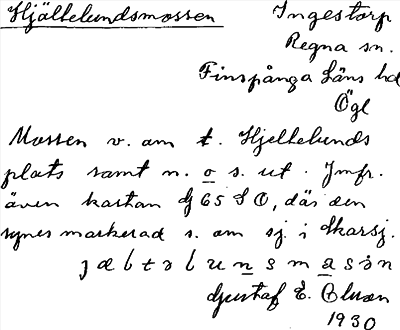 Hjällelundsmossen
Ingestorp
Regna sn.
Finspånga läns hd
Ögl
Mossen v. om t. Hjellelunds
plats samt n. o s. ut. Jmfr.
även kartan Gj 65 S O, där den
synes markerad s. om sj. i Skarsj.
Gustaf E.
1930